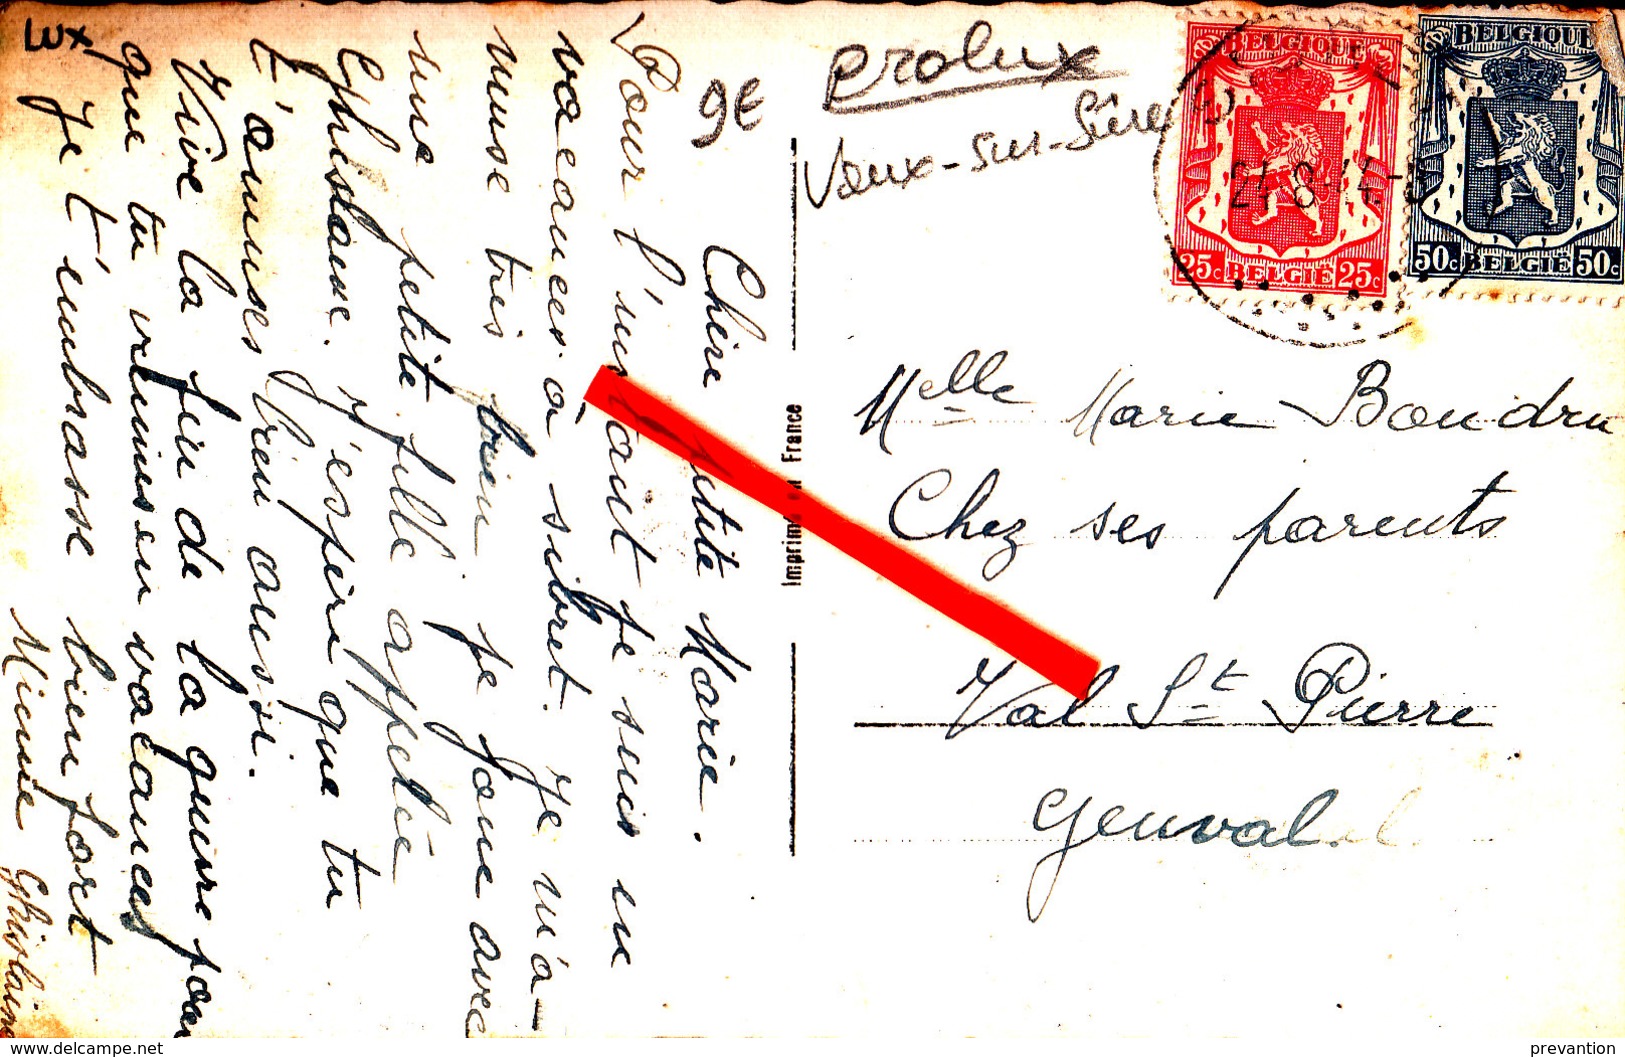 Chère petite Marie.
Pour l'instant je suis en
vacances à sibret. Je m'a-
muse très bien je joue avec
une petite fille appelée
Ghislaine. J'espère que tu
t'amuses bien aussi.
Vive la fin de la guerre pour
que tu viennes en vacances
Je t'embrasse bien fort
Mienne Ghislaine
Lux
9€
Prolux
Vaux-sur-Sûre
Imprimé en France
BELGIQUE
25c BELGIË 25c
BELGIQUE
50c BELGIË 50c
Melle Marie Boudru
Chez ses parents
Val St Pierre
Genval.
delcampe.net
prevantion